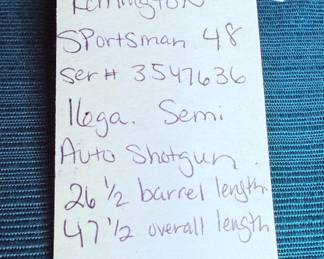 Remington
Sportsman 48
Ser # 3547636
16ga. Semi
Auto Shotgun.
26 1/2 barrel length
47 1/2 overall length